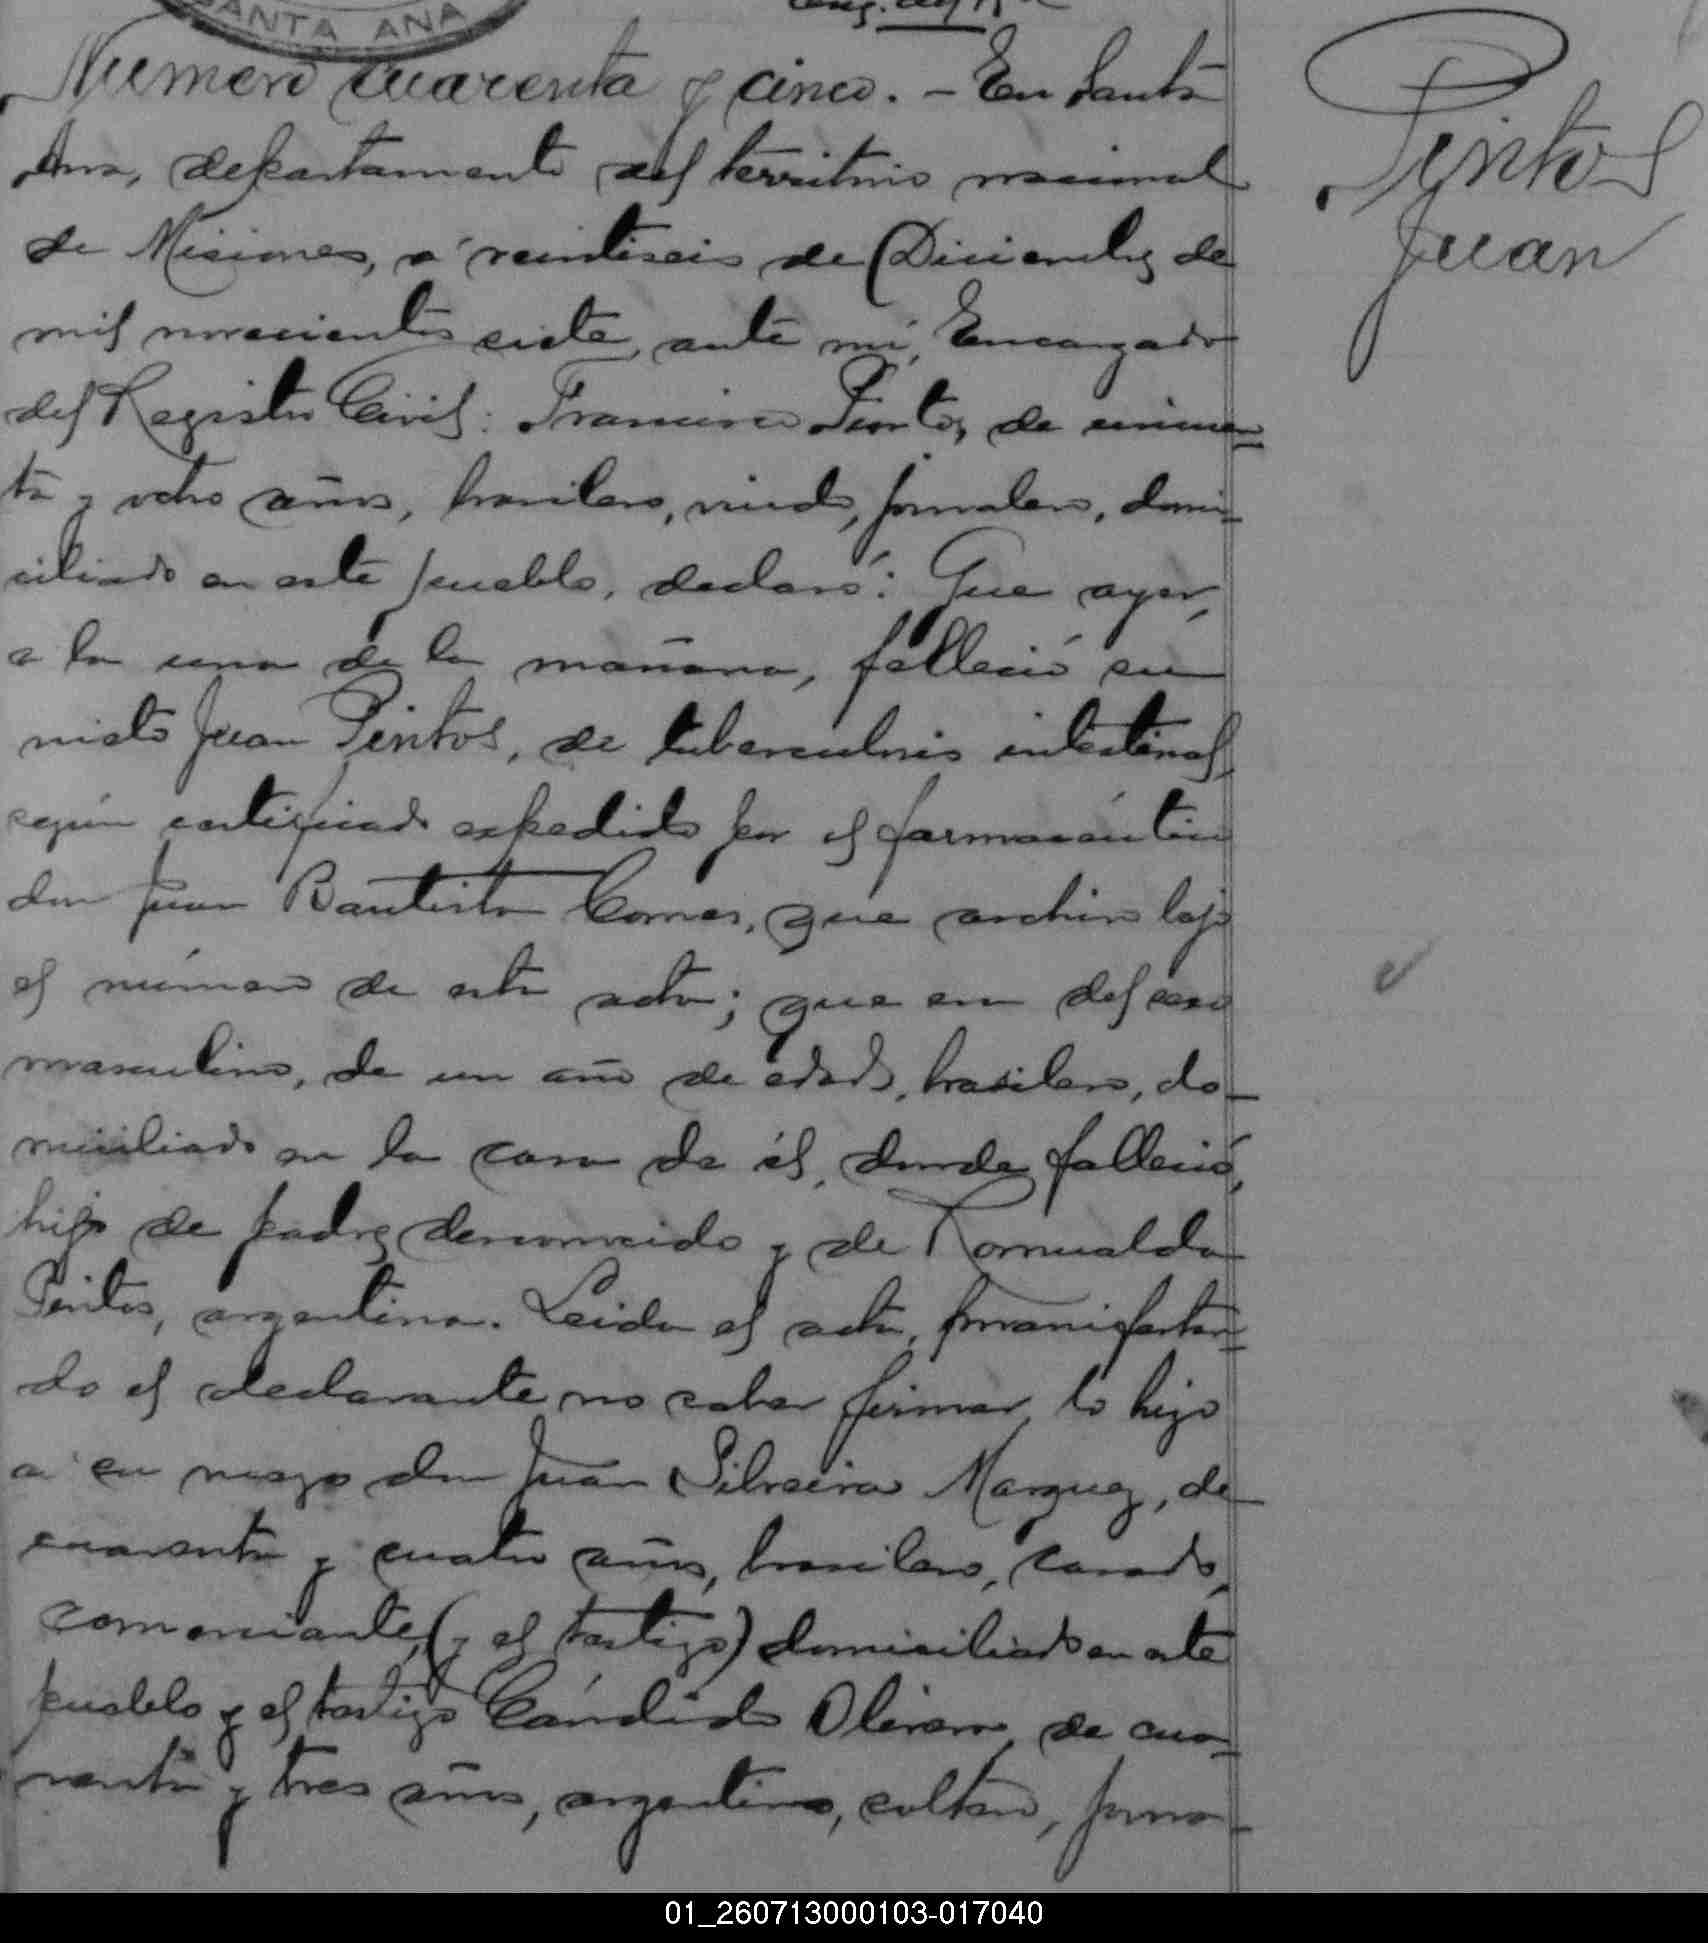 SANTA ANA
Numero cuarenta y cinco. – En Santa
Ana, departamento del territorio nacional
de Misiones, a veintiseis de Diciembre de
mil novecientos siete, ante mí, Encargado
del Registro Civil: Francisco Pintos, de cincuen=
ta y ocho años, brasilero, viudo, jornalero, domi=
ciliado en este pueblo, declaró: Que ayer,
a la una de la mañana, falleció su
nieto Juan Pintos, de tuberculosis intestinal,
según certificado expedido por el farmacéutico
don Juan Bautista Comas, que archivo bajo
el número de esta acta; que era del sexo
masculino, de un año de edad, brasilero, do-
miciliado en la casa de él, donde falleció,
hijo de padre desconocido y de Romualda
Pintos, argentina. Leida el acta, manifestan=
do el declarante no saber firmar, lo hizo
a su ruego don Juan Silveira Marquez, de
cuarenta y cuatro años, brasilero, casado,
comerciante, (y el testigo) domiciliado en este
pueblo y el testigo Cándido Olivera, de cua=
renta y tres años, argentino, soltero, jorna-
Pintos
Juan
01_260713000103-017040